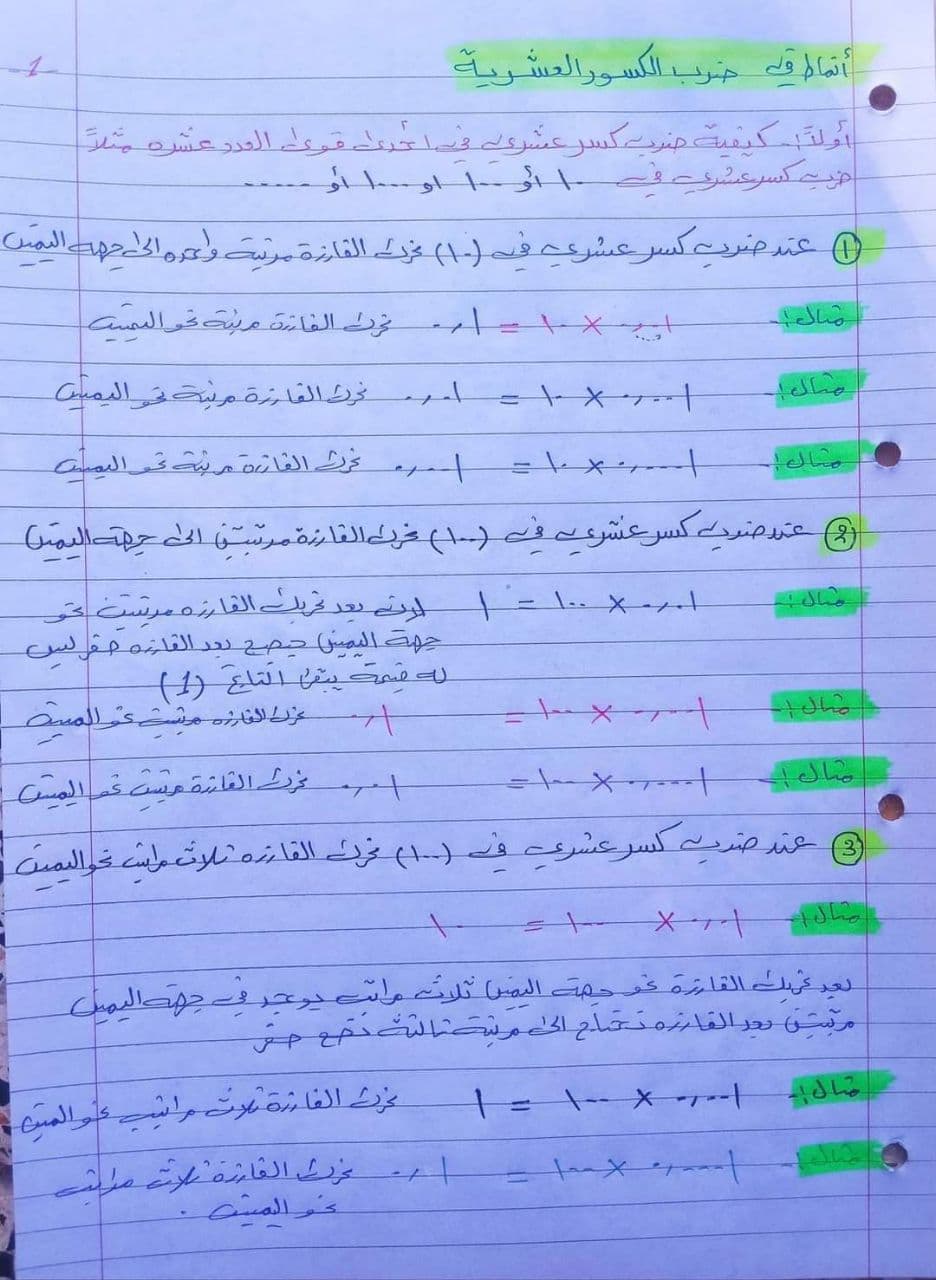 -1-
أنماط في ضرب الكسور العشرية
أولاً :- كيفية ضرب كسر عشري في احدى قوى العدد عشره مثلاً
ضرب كسر عشري في ١٠ أو ١٠٠ او ١٠٠٠ أو ......
① عند ضرب كسر عشري في (١٠) نحرك الفارزة مرتبة واحده الى جهة اليمين
مثال :- ٠,٠١ × ١٠ = ٠,١ نحرك الفارزة مرتبة نحو اليمين
مثال :- ٠,٠٠١ × ١٠ = ٠,٠١ نحرك الفارزة مرتبة نحو اليمين
مثال :- ٠,٠٠٠١ × ١٠ = ٠,٠٠١ نحرك الفارزة مرتبة نحو اليمين
② عند ضرب كسر عشري في (١٠٠) نحرك الفارزة مرتبتين الى جهة اليمين
مثال :- ٠,٠١ × ١٠٠ = ١ لانه بعد تحريك الفارزه مرتبتين نحو
جهة اليمين يصبح بعد الفارزه صفر ليس
له قيمة يبقى الناتج (1)
مثال :- ٠,٠٠١ × ١٠٠ = ٠,١ نحرك الفارزه مرتبتين نحو اليمين
مثال :- ٠,٠٠٠١ × ١٠٠ = ٠,٠١ نحرك الفارزة مرتبتين نحو اليمين
③ عند ضرب كسر عشري في (١٠٠٠) نحرك الفارزه ثلاث مراتب نحو اليمين
مثال :- ٠,٠١ × ١٠٠٠ = ١٠
بعد تحريك الفارزة نحو جهة اليمين ثلاث مراتب يوجد في جهة اليمين
مرتبتين بعد الفارزه نحتاج الى مرتبة ثالثة نضع صفر
مثال :- ٠,٠٠١ × ١٠٠٠ = ١ نحرك الفارزة ثلاث مراتب نحو اليمين
مثال :- ٠,٠٠٠١ × ١٠٠٠ = ٠,١ نحرك الفارزة ثلاث مراتب
نحو اليمين .